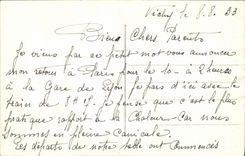 Vichy le 8.8.33
Biens Chers Parents
Je viens par ce petit mot vous annoncer
mon retour à Paris pour le 10 - à 2 heures
à la Gare de Lyon je pars d'ici avec le
train de 8h17. je pense que c'est le plus
pratique rapport à la Chaleur - Car nous
sommes en pleine Canicule.
Les départs de notre salle ont Commencés